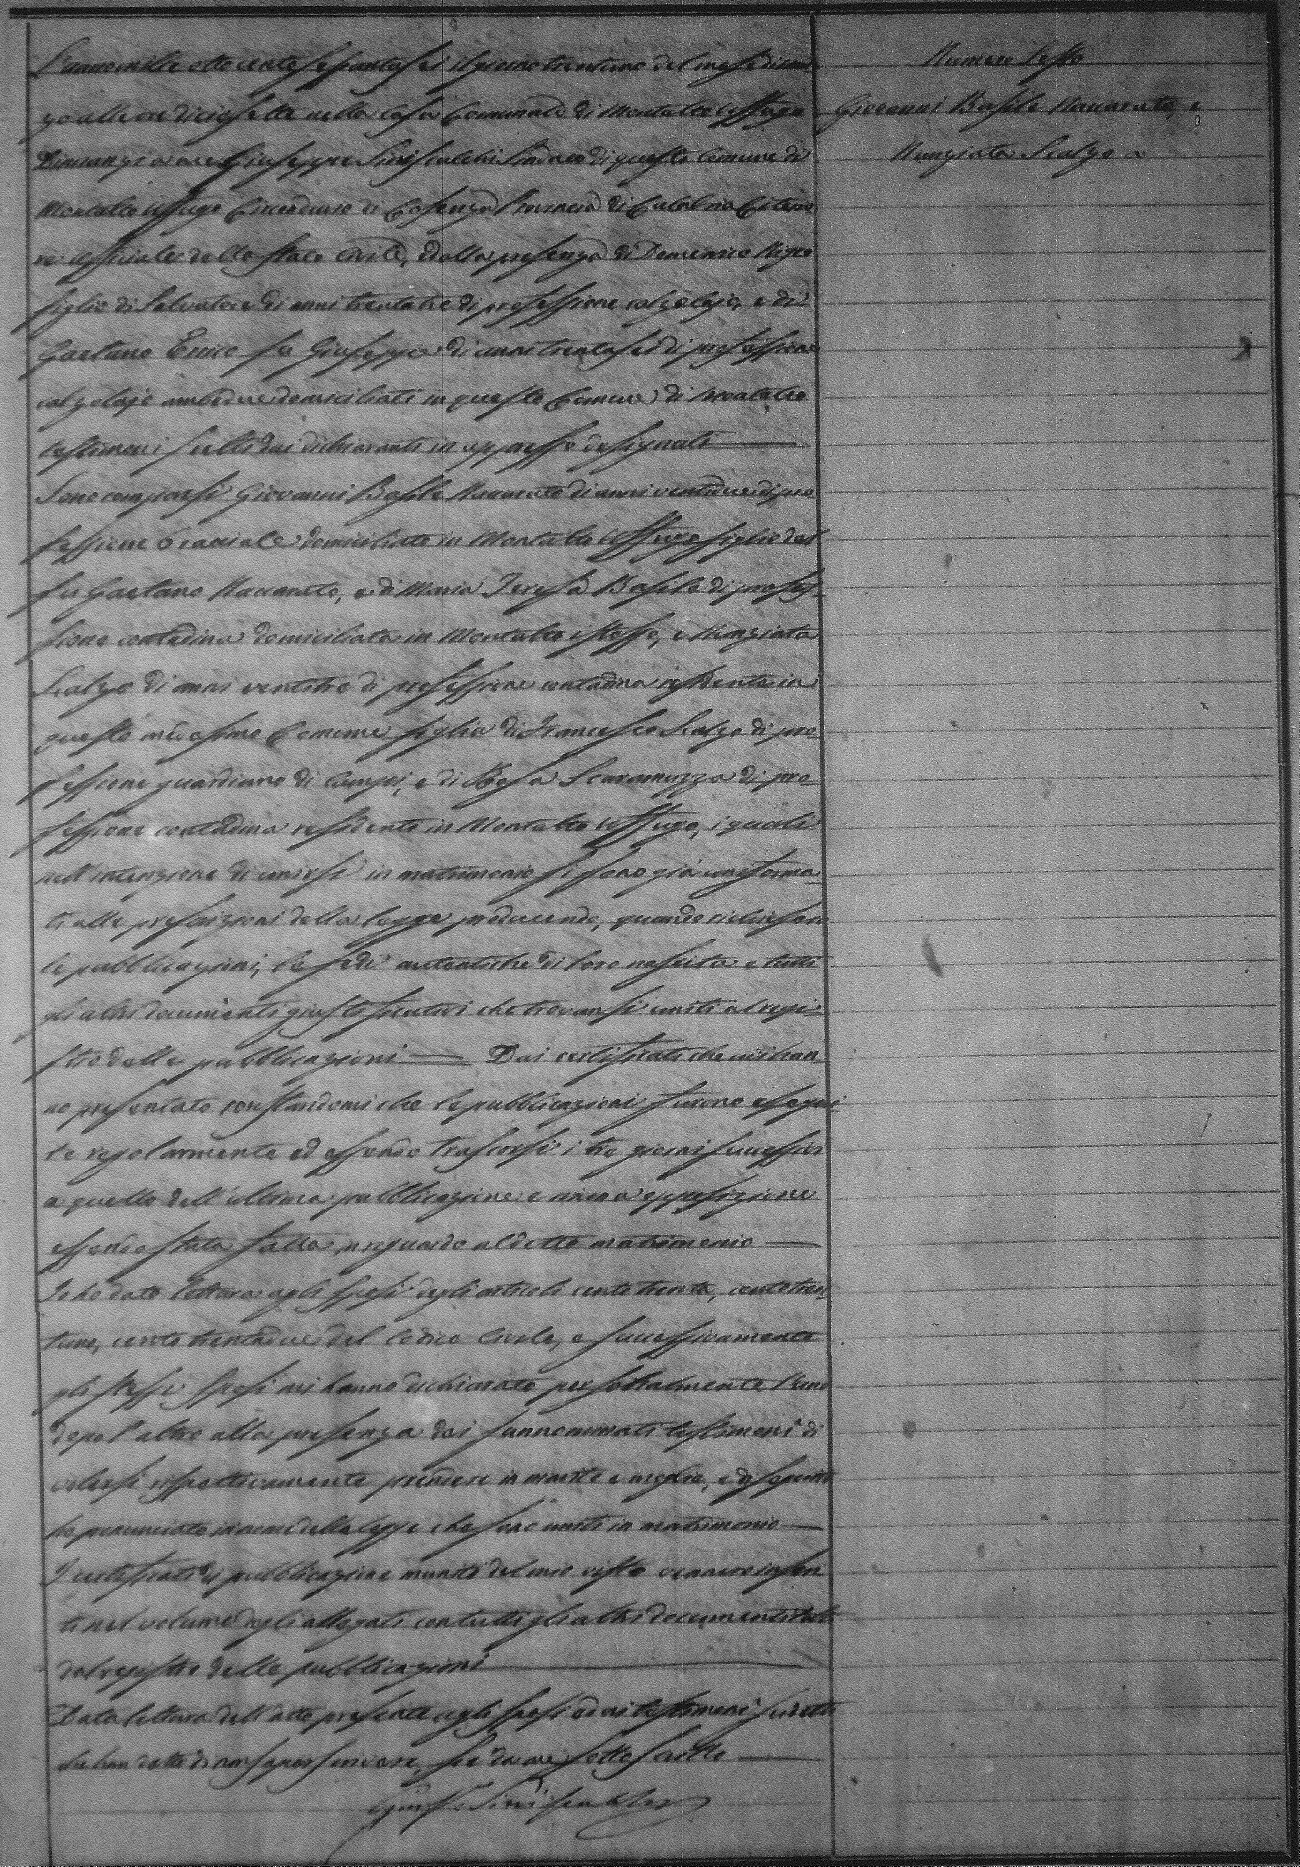 L'anno mille otto cento sessantasei il giorno trentuno del mese di
alle ore diciasette nella Casa Comunale di Montalto Uffugo
Dinanzi a me Giuseppe Siniscalchi Sindaco di questo Comune di
Montalto Uffugo Circondario di Cosenza Provincia di Calabria Citerio
re Uffiziale dello Stato Civile, ed alla presenza di Domenico
figlio di Salvatore di anni trentatre di professione calzolajo, e di
Gaetano fu Giuseppe di anni trentasei di professione
calzolajo ambedue domiciliati in questo Comune di Montalto
testimoni scelti dai dichiaranti in appresso designati
Sono comparsi Giovanni Basile Naccarato di anni ventidue di pro
fessione domiciliato in Montalto Uffugo figlio del
fu Gaetano Naccarato, e di Maria Teresa Basile di profes
sione contadina domiciliata in Montalto stesso, e Nunziata
Scalzo di anni ventitre di professione contadina residente in
questo medesimo Comune figlia di Francesco Scalzo di pro
fessione guardiano di Campi, e di Rosa Scaramuzza di pro
fessione contadina residente in Montalto Uffugo, i quali
nell'intenzione di unirsi in matrimonio si sono già uniforma
ti alle prescrizioni della legge producendo, quando richiesero
le pubblicazioni, le fedi autentiche di loro nascita e tutti
gli altri documenti giustificativi che trovansi uniti al regi
stro delle pubblicazioni Dai certificati che mi han
no presentato constandomi che le pubblicazioni furono esegui
te regolarmente ed essendo trascorsi i tre giorni successivi
a quello dell'ultima pubblicazione e niuna opposizione
essendo stata fatta in riguardo al detto matrimonio
Io ho dato lettura agli sposi degli articoli cento trenta, cento tren
tuno, cento trentadue del Codice Civile, e successivamente
gli stessi sposi mi hanno dichiarato personalmente l'uno
dopo l'altro alla presenza dei sunnominati testimoni di
volersi rispettivamente prendere in marito e moglie, ed in seguito
ho pronunciato in nome della legge che sono uniti in matrimonio
I certificati di pubblicazione muniti del mio visto vennero inseri
ti nel volume degli allegati con tutti gli altri documenti
dal registro delle pubblicazioni
Data lettura dell'atto presente agli sposi ed ai testimoni
che han detto di non saper scrivere, si è da me sottoscritto
Giuseppe Siniscalchi
Numero sesto
Giovanni Basile Naccarato, e
Nunziata Scalzo